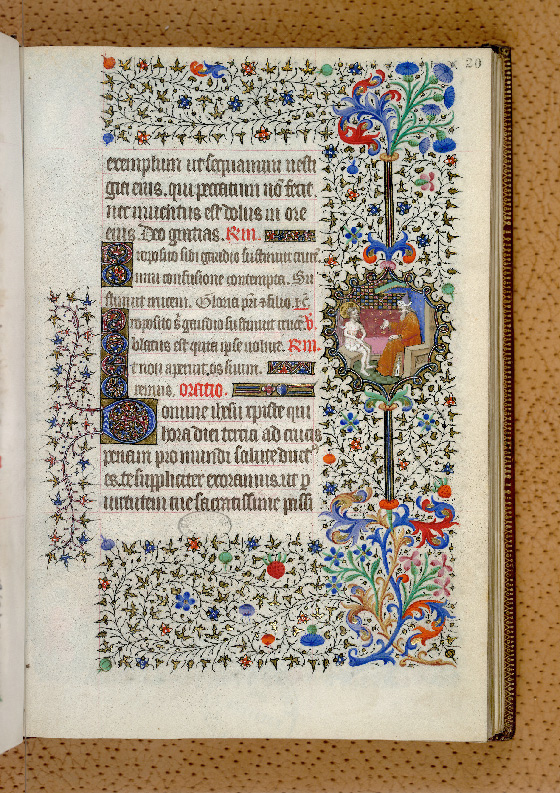 20
exemplum ut sequamini vesti
gia eius. qui peccatum nō fecit
nec inventus est dolus in ore
eius Deo gratias. Rm.
Proposito sibi gaudio sustinuit cruce.
confusione contempta. Su
stinuit crucem. Gloria pr̄i ⁊ filio
Proposito s̄ gaudio sustinuit crucē. v̄.
Oblatus est quia ipse voluit. Rm.
Et non aperuit os suum.
remus. oratio.
Domine ihesu xp̄iste qui
hora diei tertia ad crucis
penam pro mundi salute duct
es. te suppliciter exoramus. ut p
virtutem tue sacratissime passi